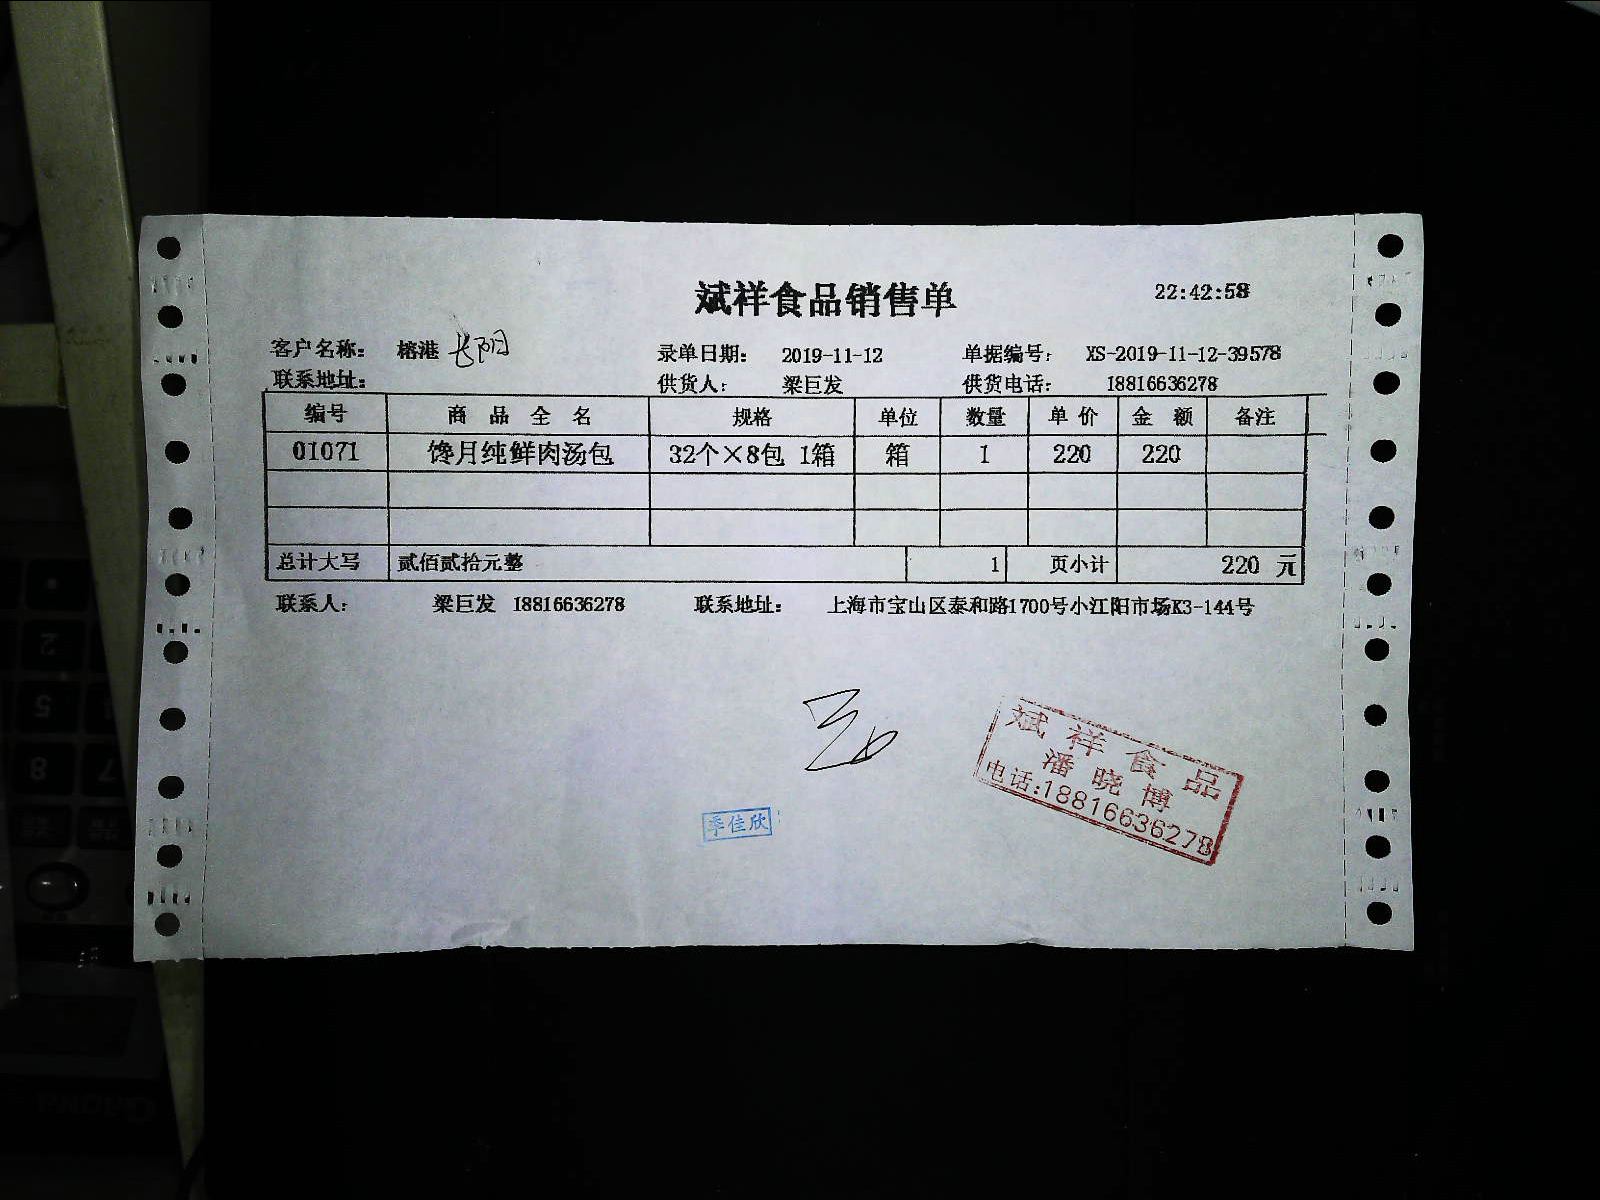 斌祥食品销售单 22:42:58
客户名称： 榕港 长阳 录单日期： 2019-11-12 单据编号： XS-2019-11-12-39578
联系地址： 供货人： 梁巨发 供货电话： 18816636278
编号 商品全名 规格 单位 数量 单价 金额 备注
01071 馋月纯鲜肉汤包 32个×8包 1箱 箱 1 220 220
总计大写 贰佰贰拾元整 1 页小计 220 元
联系人： 梁巨发 18816636278 联系地址： 上海市宝山区泰和路1700号小江阳市场K3-144号
斌祥食品
潘晓博
电话:18816636278
季佳欣
2
5
8
7